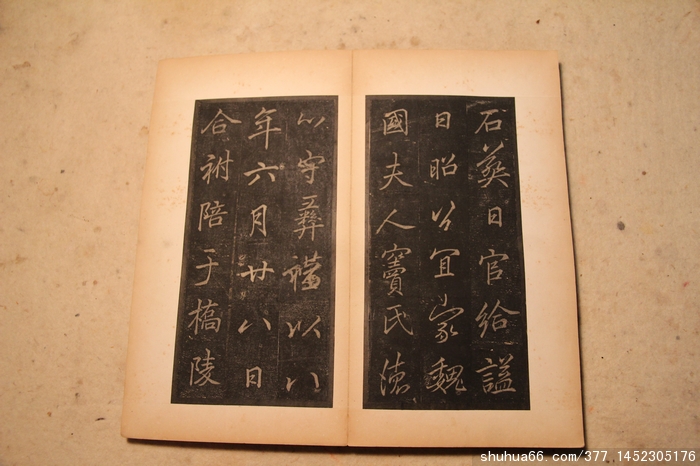 石葬日官給謚
曰昭公宜家魏
國夫人竇氏
心守彝以八
年六月廿八日
合祔陪于橋陵
shuhua66.com/377.1452305176